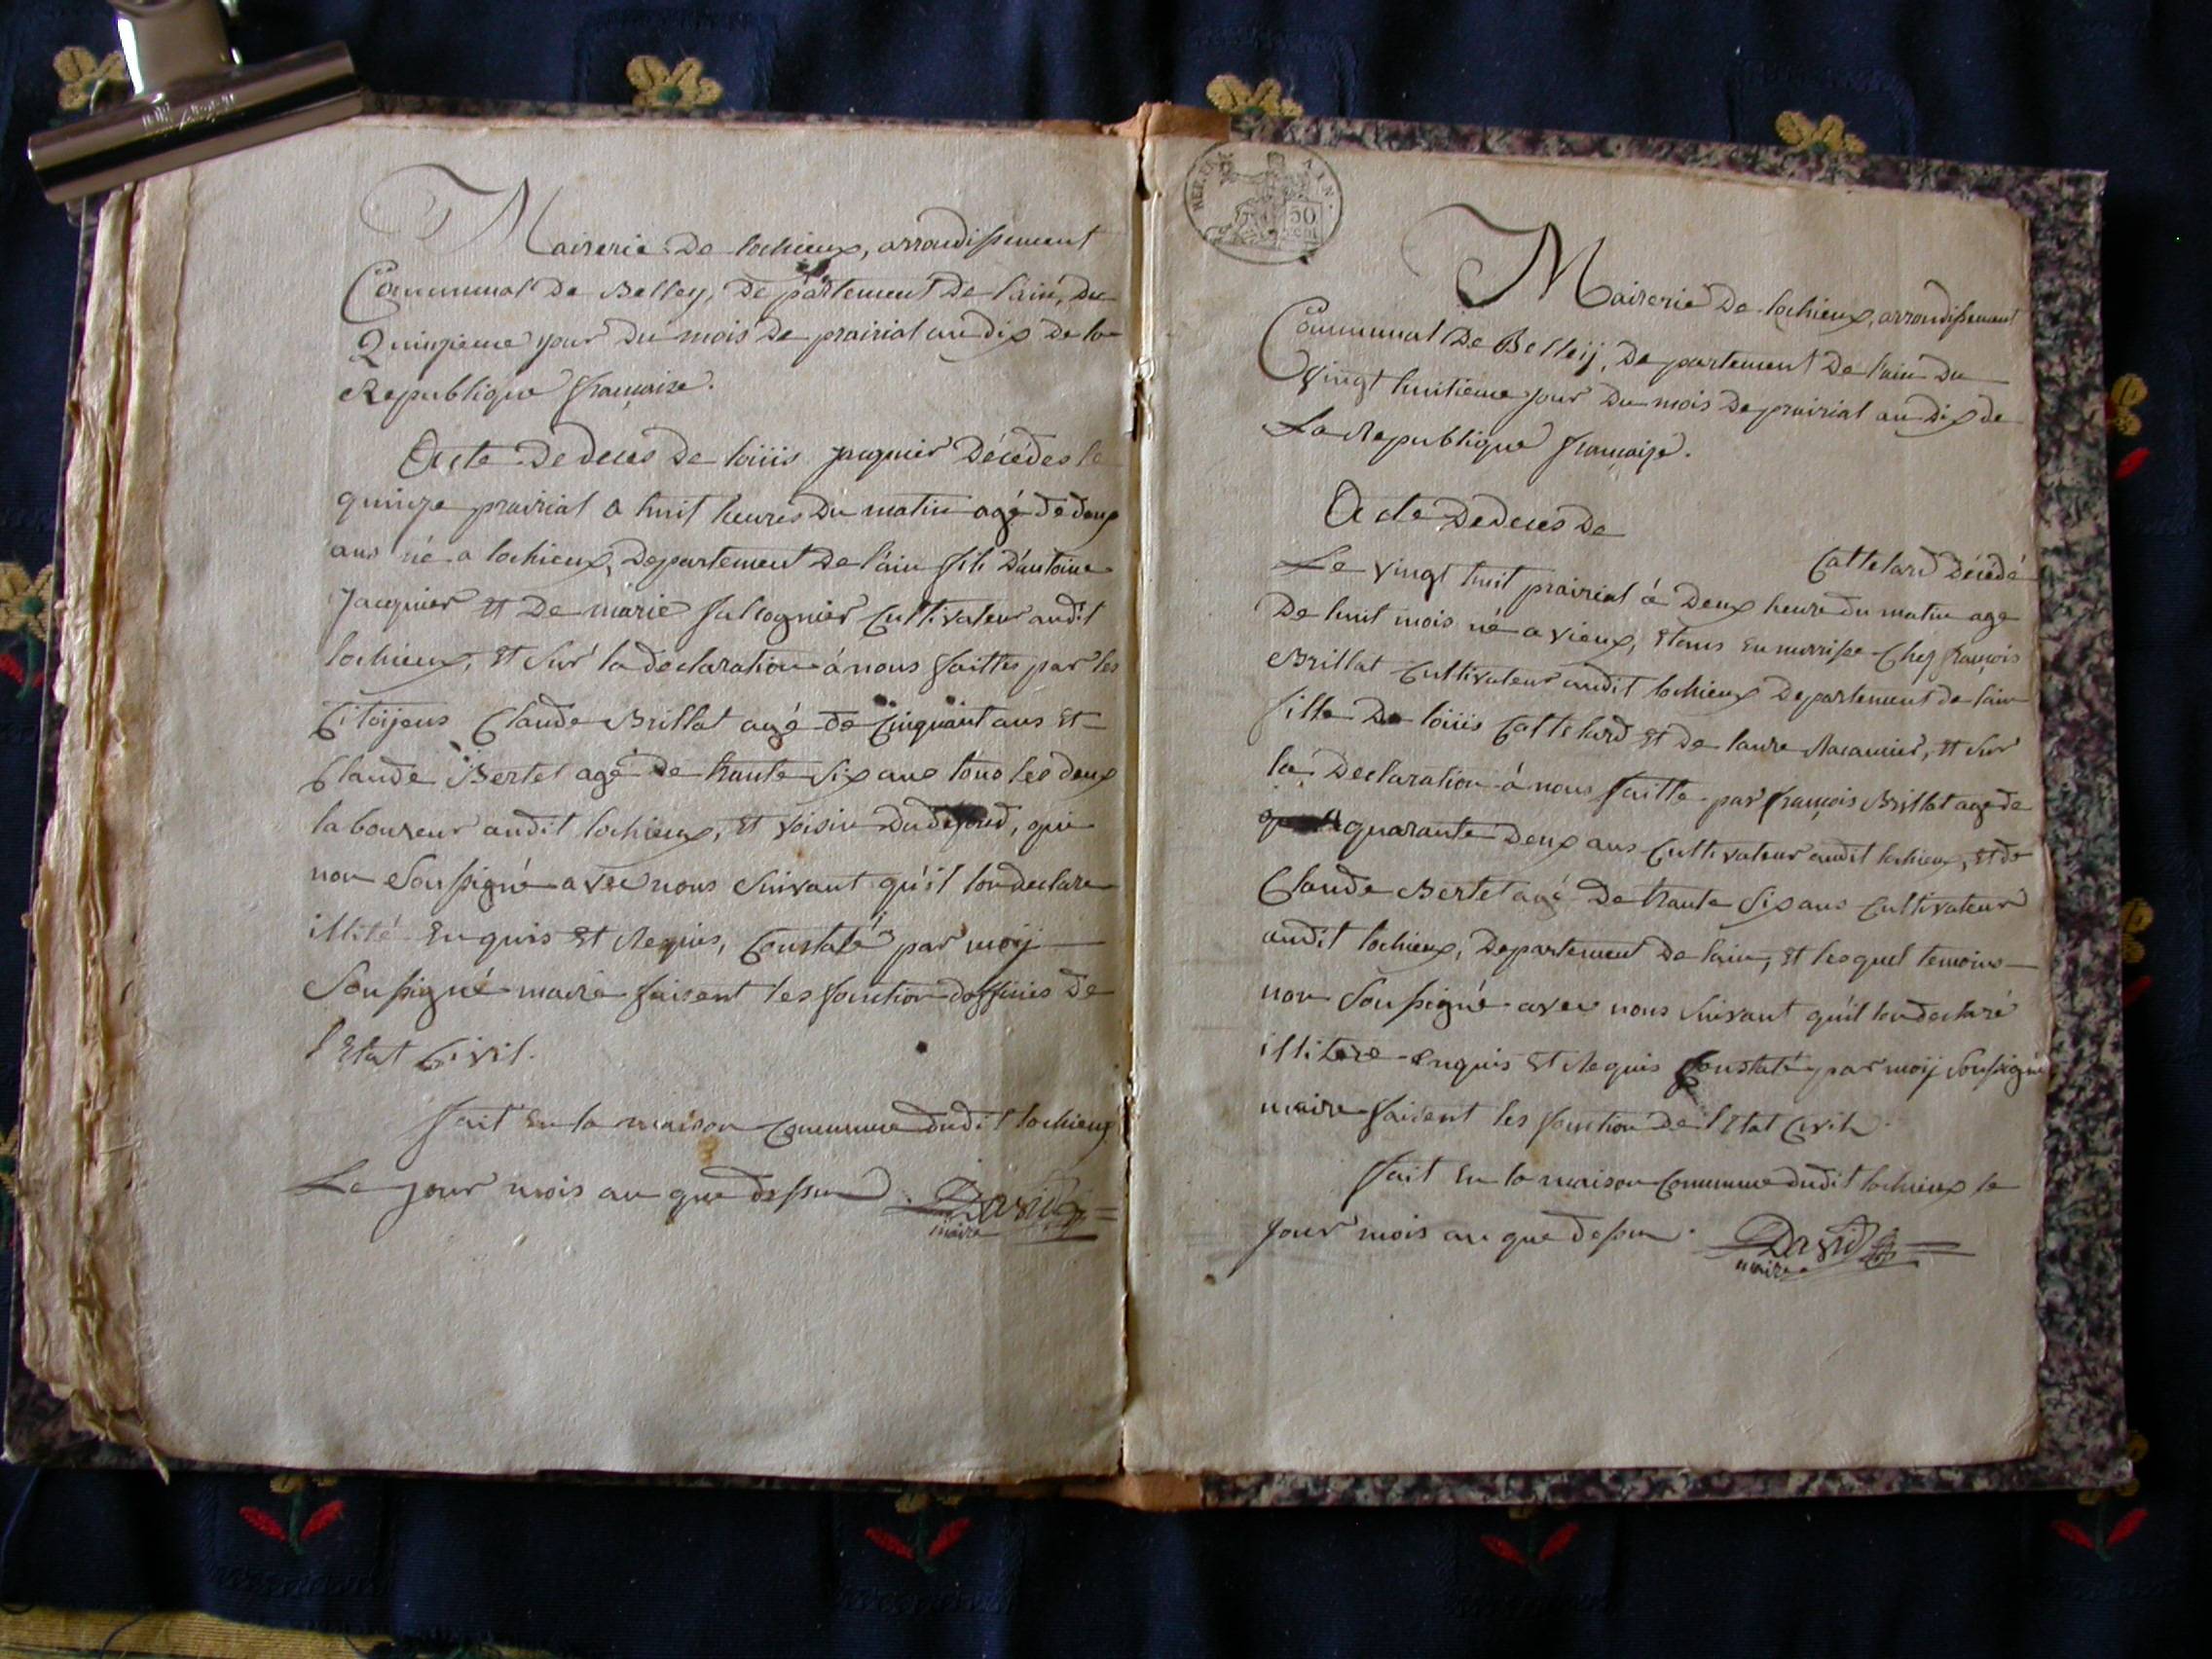 Mairerie De lochieux, arrondissement
Communal De Belley, Departement De l'ain, Du
Quinzieme jour Du mois De prairial an dix De la
Republique française.
Acte De deces De loüis Jaquier Décédes le
quinze prairial a huit heures Du matin agé de deux
ans né a lochieux, Departement De l'ain fils D'antoine
Jacquier Et De marie Cultivateur audit
lochieux, Et Sur la declaration à nous faittes par les
Citoÿens Claude Brillat agé de Cinquant ans Et
Claude Bertet agé De trante Six ans tous les deux
laboureur audit lochieux, Et voisin Dudefond, qui
non Soussigné avec nous Suivant qu'il londeclare
illité Enquis Et Requis, Constaté par moÿ
Soussigné maire faisent les fonction dofficies De
l'Etat Civil.
fait En la maison Commune dudit lochieux
Le jour mois an que dessus. David
maire
REP. FRA. AIN.
50
CENT
Mairerie De lochieux, arrondissement
Communal De Belleÿ, Departement De l'ain Du
vingt huitieme jour Du mois De prairial an Dix de
La Republique françaize.
Acte De deces De
Cattelard Décédé
Le vingt huit prairial à Deux heure du matin age
De huit mois né a vieux, Etans En nourrisse Chez françois
Brillat Cultivateur audit lochieux Departement de lain
fille De loüis Cattelard Et de laure Et Sur
la Declaration à nous faitte par françois Brillat age de
quarante Deux ans Cultivateur audit lochieux, Et de
Claude Bertet agé De trante Six ans Cultivateur
audit lochieux, Departement De lain, Et lesquel temoins
non Soussigné avec nous Suivant quil londeclaré
illitere enquis Et Requis Constaté par moÿ Soussigné
maire faisent les fonction De l'Etat Civil.
fait En la maison Commune dudit lochieux le
jour mois an que dessus. David
maire